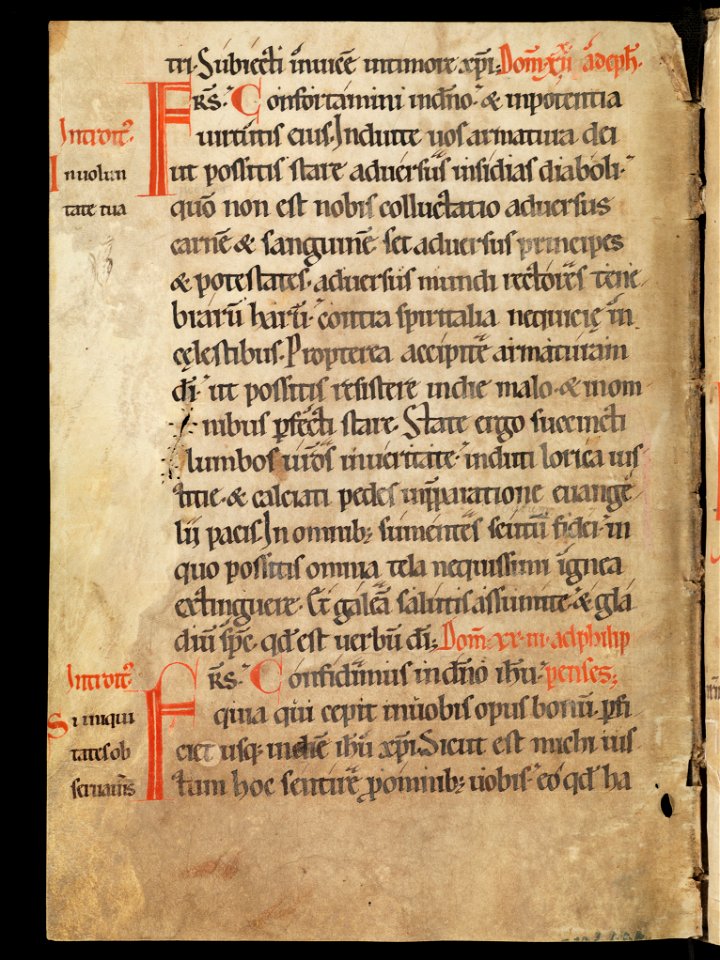 tri. Subiecti inuicē intimore xp̄i; Dom̄. xxii. adeph̄.
FRS̄. Confortamini indn̄o. & inpotentia
Introit᷒.
uirtutis eius. Induite uos armatura dei
In uolun
ut possitis stare aduersus insidias diaboli.
tate tua
quō non est nobis colluctatio aduersus
carnē & sanguinē. set aduersus principes
& potestates. aduersus mundi rectores tene
brarū harū. contra spiritalia nequicię in
cęlestibus. Propterea accipite armaturam
dī. ut possitis resistere indie malo. & inom
nibus pfecti stare. State ergo succincti
lumbos uīros inueritate. induti lorica ius
titie. & calciati pedes inpparatione euange
lii pacis. In omnib; sumentes scutū fidei. in
quo possitis omnia tela nequissimi ignea
extinguere. Et galeā salutis assumite. & gla
diū spc̄. qd̄ est uerbū dī; Dom̄. xx.iii. ad philip
Introit᷒.
FRS̄. Confidimus in dn̄o ih̄u. penses;
Si iniqui
quia qui cepit inuobis opus bonū. pfi
tates ob
ciet usq; indiē ih̄u xp̄i. Sicut est michi ius
seruaueris
tum hoc sentire pominib; uobis. eo qd̄ ha